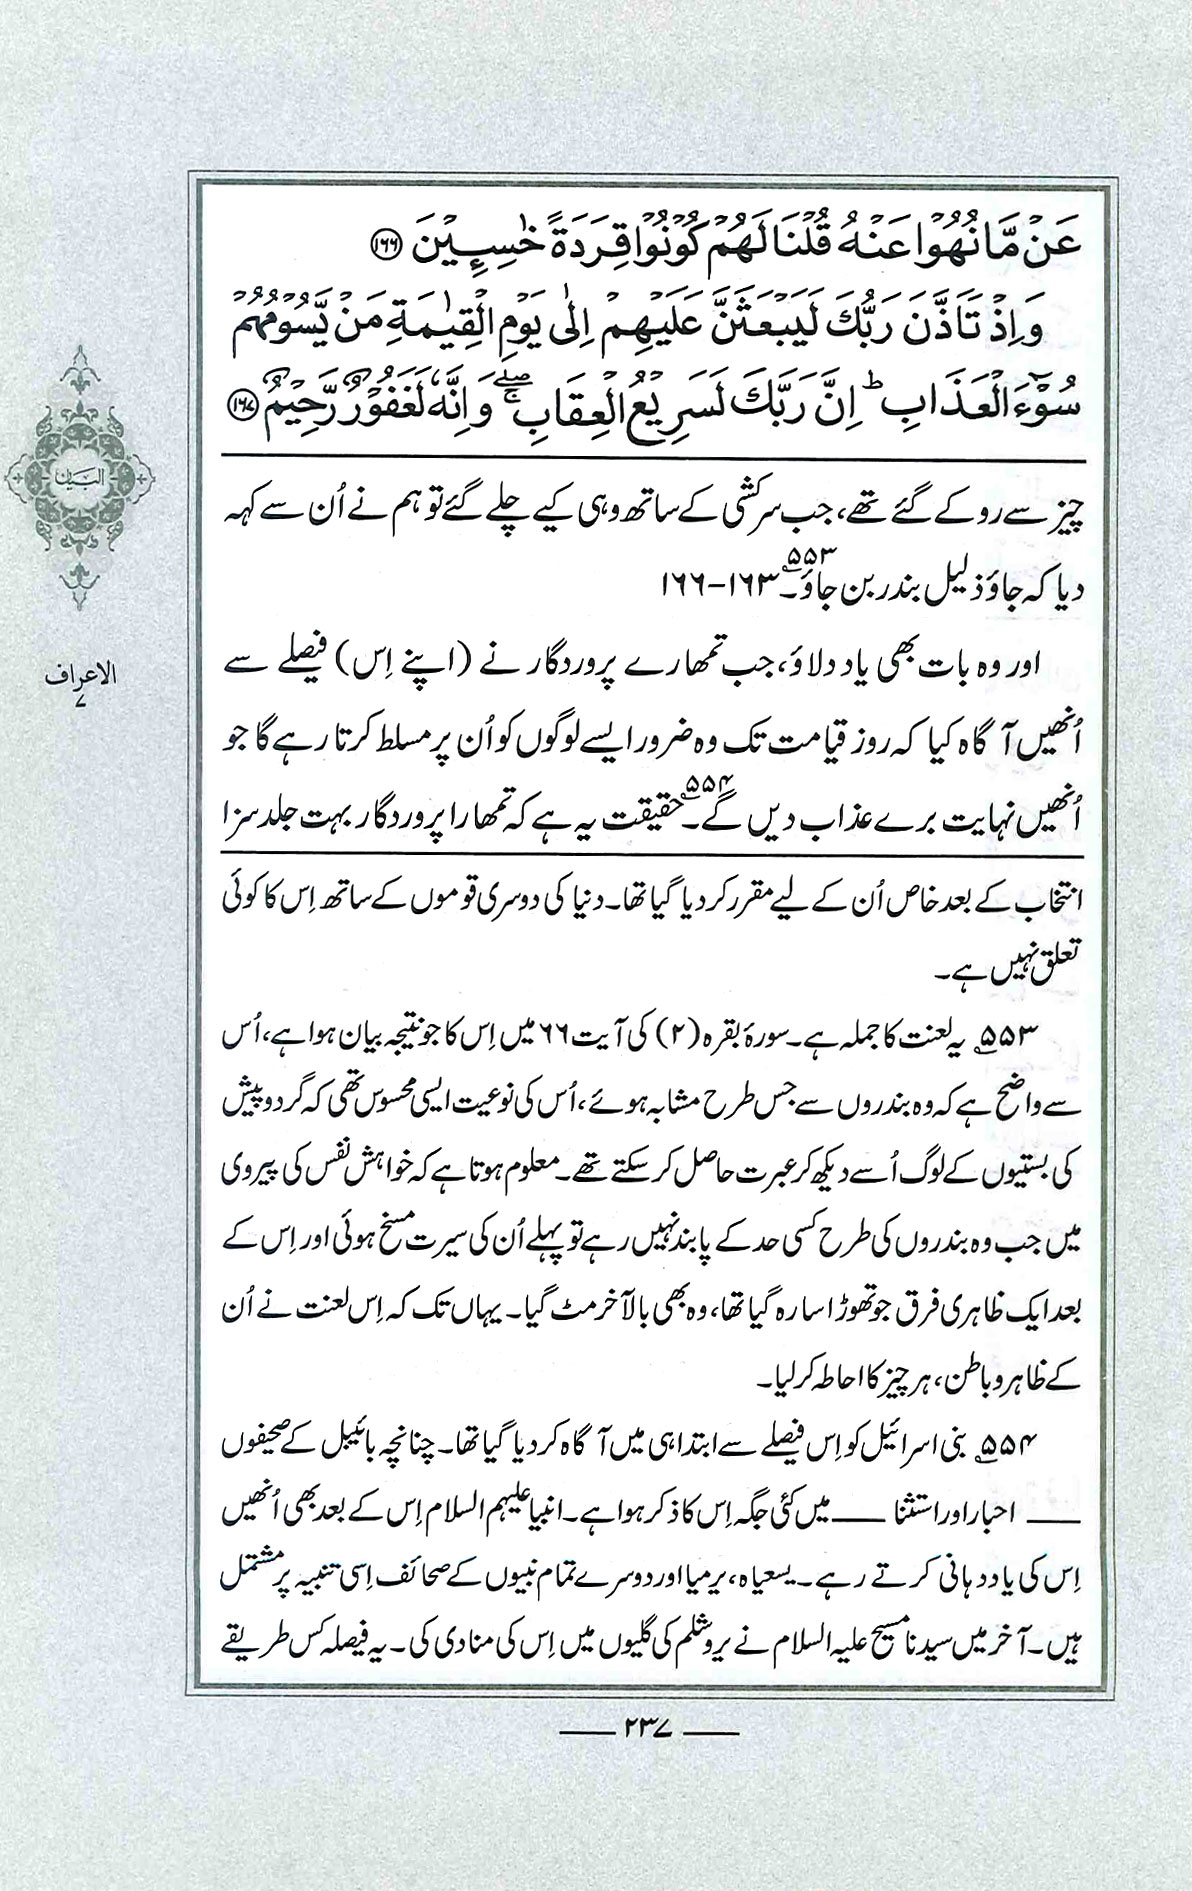 عَنْ مَّا نُهُوْا عَنْهُ قُلْنَا لَهُمْ كُوْنُوْا قِرَدَةً خٰسِـِٕيْنَ ﴿١٦٦﴾
وَاِذْ تَاَذَّنَ رَبُّكَ لَيَبْعَثَنَّ عَلَيْهِمْ اِلٰى يَوْمِ الْقِيٰمَةِ مَنْ يَّسُوْمُهُمْ
سُوْٓءَ الْعَذَابِ ؕ اِنَّ رَبَّكَ لَسَرِيْعُ الْعِقَابِ ۚۖ وَاِنَّهٗ لَغَفُوْرٌ رَّحِيْمٌ ﴿١٦٧﴾
چیز سے روکے گئے تھے، جب سرکشی کے ساتھ وہی کیے چلے گئے تو ہم نے اُن سے کہہ
دیا کہ جاؤ ذلیل بندر بن جاؤ۔۵۵۳ ۱۶۳-۱۶۶
اور وہ بات بھی یاد دلاؤ، جب تمھارے پروردگار نے (اپنے اِس) فیصلے سے
اُنھیں آگاہ کیا کہ روز قیامت تک وہ ضرور ایسے لوگوں کو اُن پر مسلط کرتا رہے گا جو
اُنھیں نہایت برے عذاب دیں گے۔۵۵۴ حقیقت یہ ہے کہ تمھارا پروردگار بہت جلد سزا
انتخاب کے بعد خاص اُن کے لیے مقرر کر دیا گیا تھا۔ دنیا کی دوسری قوموں کے ساتھ اِس کا کوئی
تعلق نہیں ہے۔
۵۵۳ یہ لعنت کا جملہ ہے۔ سورۂ بقرہ (۲) کی آیت ۶۶ میں اِس کا جو نتیجہ بیان ہوا ہے، اُس
سے واضح ہے کہ وہ بندروں سے جس طرح مشابہ ہوئے، اُس کی نوعیت ایسی محسوس تھی کہ گردوپیش
کی بستیوں کے لوگ اُسے دیکھ کر عبرت حاصل کر سکتے تھے۔ معلوم ہوتا ہے کہ خواہش نفس کی پیروی
میں جب وہ بندروں کی طرح کسی حد کے پابند نہیں رہے تو پہلے اُن کی سیرت مسخ ہوئی اور اِس کے
بعد ایک ظاہری فرق جو تھوڑا سا رہ گیا تھا، وہ بھی بالآخر مٹ گیا۔ یہاں تک کہ اِس لعنت نے اُن
کے ظاہر و باطن، ہر چیز کا احاطہ کر لیا۔
۵۵۴ بنی اسرائیل کو اِس فیصلے سے ابتدا ہی میں آگاہ کر دیا گیا تھا۔ چنانچہ بائیبل کے صحیفوں
—— احبار اور استثنا —— میں کئی جگہ اِس کا ذکر ہوا ہے۔ انبیا علیہم السلام اِس کے بعد بھی اُنھیں
اِس کی یاددہانی کرتے رہے۔ یسعیاہ، یرمیا اور دوسرے تمام نبیوں کے صحائف اِسی تنبیہ پر مشتمل
ہیں۔ آخر میں سیدنا مسیح علیہ السلام نے یروشلم کی گلیوں میں اِس کی منادی کی۔ یہ فیصلہ کس طریقے
—— ۲۳۷ ——
البیان
الاعراف
۷